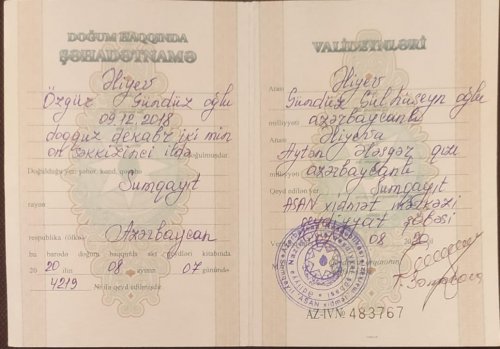 DOĞUM HAQQINDA
ŞƏHADƏTNAMƏ
Əliyev
Özgür Gündüz oğlu
09.12.2018
doqquz dekabr iki min
on səkkizinci ildə doğulmuşdur.
Doğulduğu yer: şəhər, kənd, qəsəbə
Sumqayıt
rayon
respublika (ölkə) Azərbaycan
bu barədə doğum haqqında akt qeydləri kitabında
20 20 ilin 08 ayının 07 gününündə
4219 № ilə qeyd edilmişdir
VALİDEYNLƏRİ
Əliyev
Atası Gündüz Gülhüseyn oğlu
milliyyəti azərbaycanlı
Əliyeva
Anası Aytən Ələsgər qızı
milliyyəti azərbaycanlı
Qeyd edilən yer Sumqayıt
ASAN xidmət mərkəzi
qeydiyyat şöbəsi
07 08 20
AZ-IV № 483767